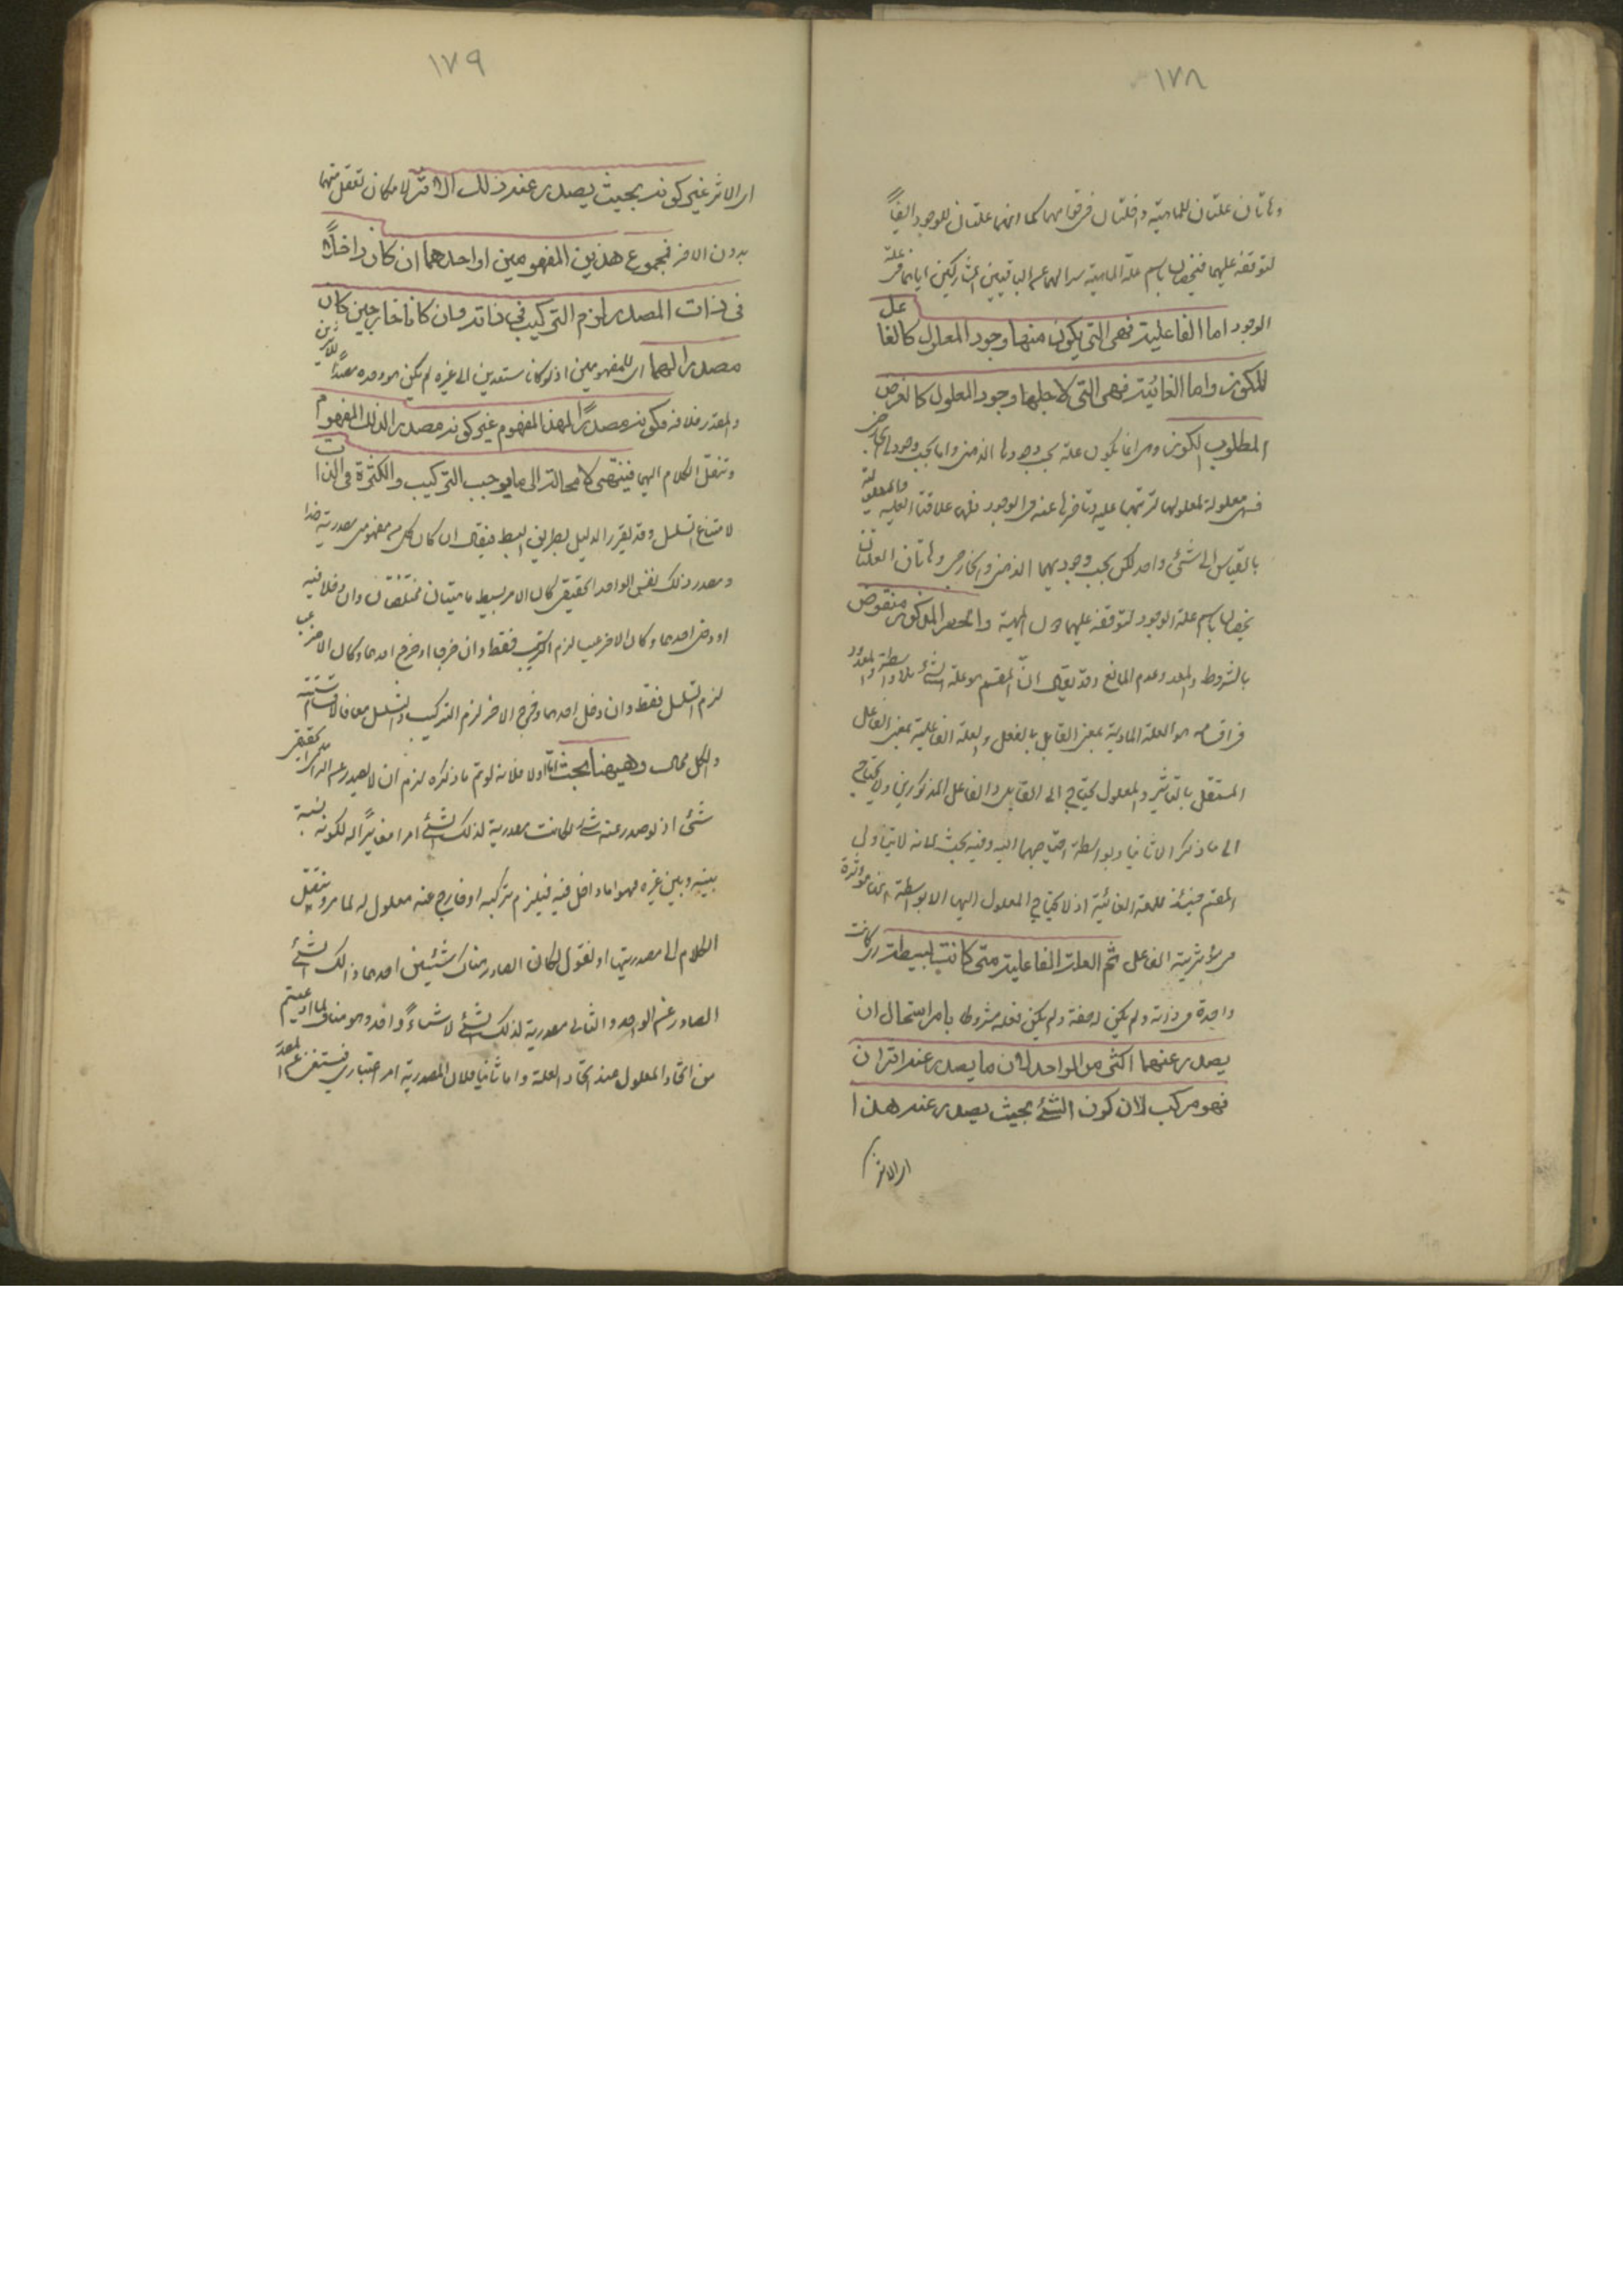 ١٧٨
وهاتان علتان للماهية داخلتان في قوامها كما انهما علتان للوجود ايضاً
لتوقفه عليهما فيخصان باسم علة الماهية تميزا لهما عن الباقيين المشاركين اياهما في علة
الوجود اما الفاعلية فهى التى يكون منها وجود المعلول كالفاعل
للكوز واما الغائية فهى التى لاجلها وجود المعلول كالغرض
المطلوب الكوز وهى انما يكون علة بحسب وجودها الذهنى واما بحسب وجودها الخارجى
فهى معلولة لمعلولها لترتبها عليه وتاخرها عنه فى الوجود فلها علاقتا العلية والمعلولية
بالقياس الى شئ واحد لكن بحسب وجوديهما الذهنى والخارجى وهاتان العلتان
يخصان باسم علة الوجود لتوقفه عليهما دون المهية والحصر المذكور منقوض
بالشروط والمعد وعدم المانع وقد يقال ان المقسم هو علة الشئ بلا واسطة والمعدود
فى اقسامه هو العلة المادية بمعنى القابل بالفعل والعلة الفاعلية بمعنى الفاعل
المستقل بالتاثير والمعلول يحتاج الى القابل والفاعل المذكورين ولا يحتاج
الى ما ذكر الا ثانيا وبواسطة احتياجهما اليه وفيه بحث لانه لا يتناول
المقسم حينئذ للعلة الغائية اذ لا يحتاج المعلول اليها الا بواسطة انها مؤثرة
فى مؤثرية الفاعل ثم العلة الفاعلية متى كانت بسيطة اى كانت
واحدة فى ذاته ولم يكن له صفة ولم يكن فعله مشروطا بامر استحال ان
يصدر عنها اكثر من الواحد لان ما يصدر عنه اثران
فهو مركب لان كون الشئ بحيث يصدر عنه هذا
اى الاثر
١٧٩
اى الاثر غير كونه بحيث يصدر عنه ذلك الاثر لامكان تعقل منهما
بدون الاخر فمجموع هذين المفهومين او احدهما ان كان داخلاً
فى ذات المصدر لزم التركيب فى ذاته وان كانا خارجين كان
مصدرا لهما اى للمفهومين اذ لو كانا مستندين الى غيره لم يكن هو وحده مصدرا للاثرين
والمقدر خلافه فكونه مصدرًا لهذا المفهوم غير كونه مصدرا لذلك المفهوم
وننقل الكلام اليهما فينتهى لا محالة الى ما يوجب التركيب والكثرة فى الذات
لامتناع التسلسل وقد يقرر الدليل بطريق ابسط فيقال ان كان كل من مفهومى مصدرية هذا
ومصدر ذلك نفس الواحد الحقيقى كان لامر بسيط ماهيتان مختلفتان وان دخلا فيه
او دخل احدهما وكان الاخر عينا لزم التركيب فقط وان خرجا او خرج احدهما وكان الاخر عينا
لزم التسلسل فقط وان دخل احدهما وخرج الاخر لزم التركيب والتسلسل معا فالاقسام ستة
والكل محال وههنا بحث اما اولا فلانه لو تم ما ذكره لزم ان لا يصدر عن الواحد الحقيقى
شئ اذ لو صدر عنه شئ لكانت مصدرية لذلك الشئ امرا مغايرًا له لكونه نسبة
بينه وبين غيره فهو اما داخل فيه فيلزم تركبه او خارج عنه معلول له لما مر وننقل
الكلام الى مصدريتها او نقول لكان الصادر هناك شيئين احدهما ذلك الشئ
الصادر عن الواحد والثانى مصدرية لذلك الشئ لا شيئاً واحدا وهو مناف لما ادعيتم
من اتحاد المعلول عند اتحاد العلة واما ثانيا فلان المصدرية امر اعتبارى فيستغنى عن العلة